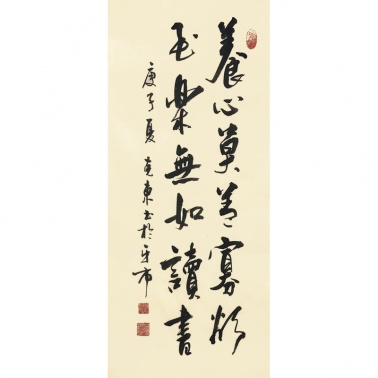 養心莫善寡欲
至樂無如讀書
庚子夏克東書於市